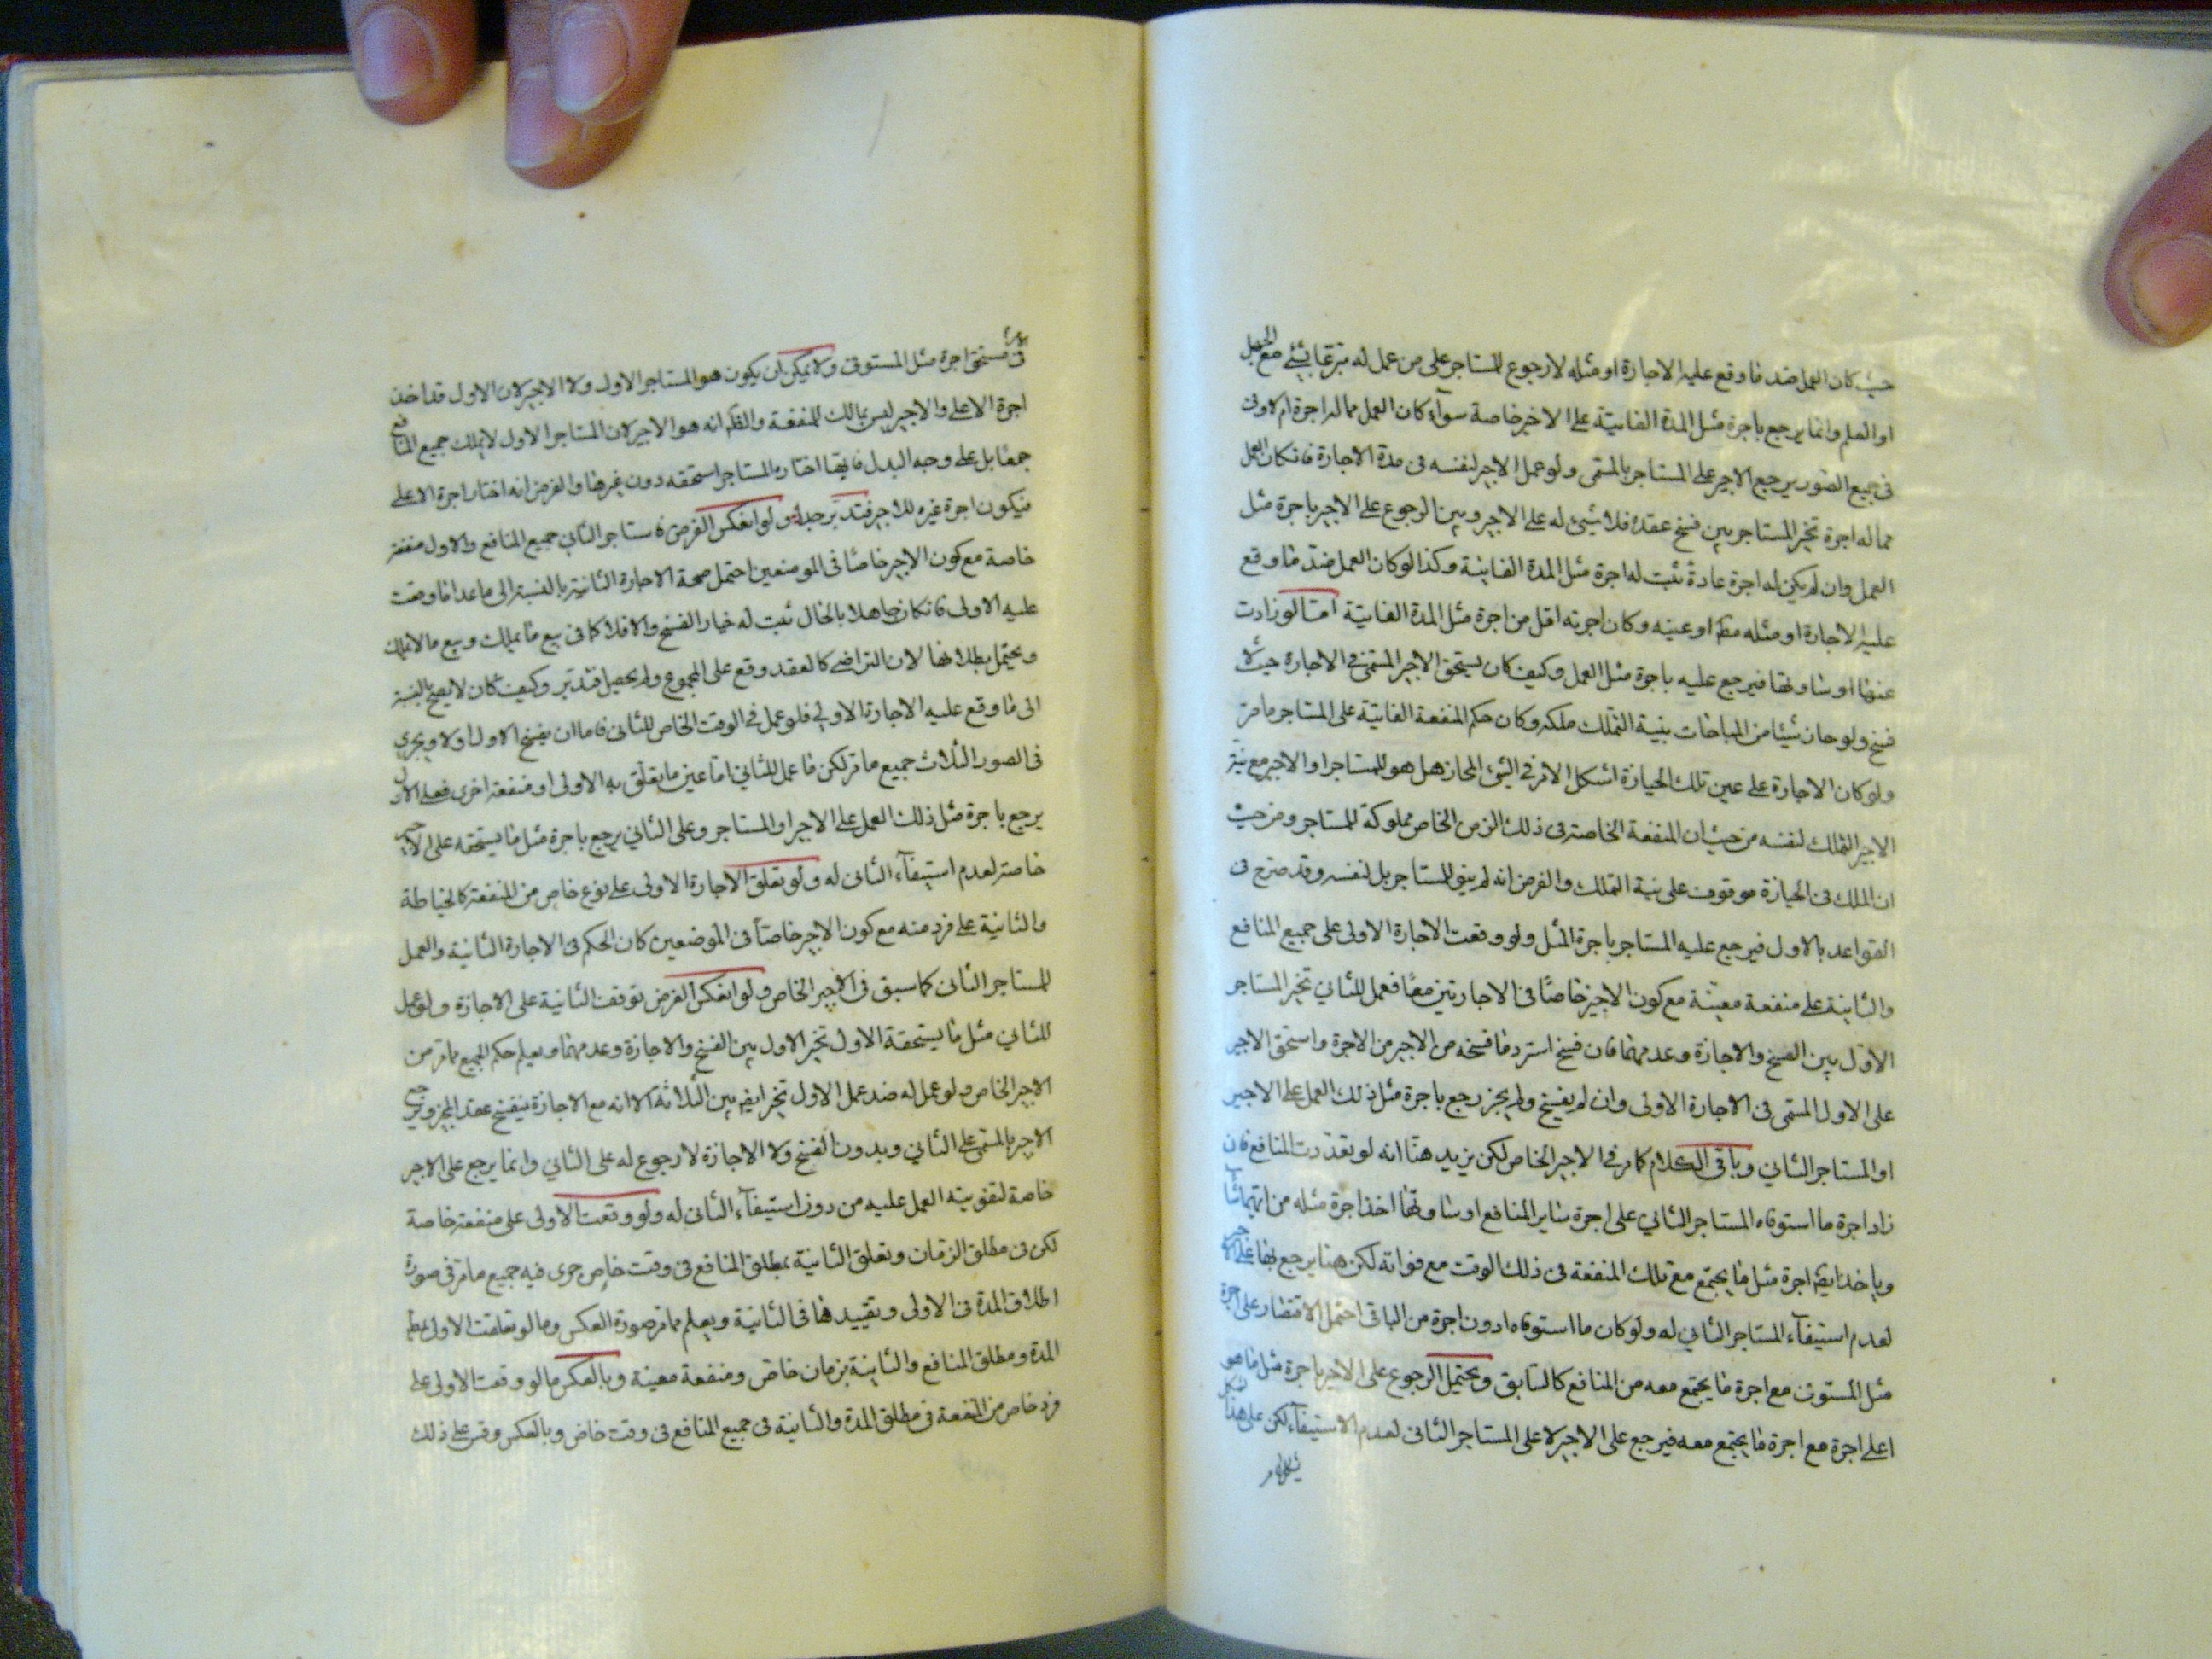 حيث كان العمل ضد ما وقع عليه الاجارة او مثله لا رجوع للمستاجر على من عمل له متبرعا بشئ مع الجهل
او العلم وانما يرجع باجرة مثل المدة الفايتة على الاخير خاصة سوآء كان العمل مما له اجرة ام لا وفى
فى جميع الصور يرجع الاجير على المستاجر بالمسمى ولو عمل الاجير لنفسه فى مدة الاجارة فان كان العمل
مما له اجرة تخير المستاجر بين فسخ عقده فلا شئ له على الاجير وبين الرجوع على الاجير باجرة مثل
العمل وان لم يكن له اجرة عادة ثبت له اجرة مثل المدة الفايتة وكذا لو كان العمل ضد ما وقع
عليه الاجارة او مثله مظم او عينه وكان اجرته اقل من اجرة مثل المدة الفايتة امّا لو زادت
عنها او ساوتها فيرجع عليه باجرة مثل العمل وكيف كان يستحق الاجير المسمى فى الاجارة حيث لا
فسخ ولو حاز شيئا من المباحات بنية التملك ملكه وكان حكم المنفعة الفايتة على المستاجر ما مر
ولو كان الاجارة على عين تلك الحيازة اشكل الامر فى الشئ المحاز هل هو للمستاجر او الاجير مع نية
الاجير التملك لنفسه من حيث ان المنفعة الخاصة فى ذلك الزمن الخاص مملوكة للمستاجر ومن حيث
ان الملك فى الحيازة موقوف على نية التملك والفرض انه لم ينو للمستاجر بل لنفسه وقد صرح فى
القواعد بالاول فيرجع عليه المستاجر باجرة المثل ولو وقعت الاجارة الاولى على جميع المنافع
والثانية على منفعة معينة مع كون الاجير خاصًا فى الاجارتين معًا فعمل للثاني تخير المستاجر
الاول بين الفسخ والاجازة وعدمهما فان فسخ استرد ما قسخه من الاجير من الاجرة واستحق الاجير
على الاول المسمى فى الاجارة الاولى وان لم يفسخ ولم يجز رجع باجرة مثل ذلك العمل على الاجير
او المستاجر الثاني وباقى الكلام كما مر فى الاجير الخاص لكن يزيد هنا انه لو تعذرت المنافع فان
زاد اجرة ما استوفاه المستاجر الثاني على اجرة ساير المنافع او ساوتها اخذ اجرة مثله من ايهما شآء
وياخذ ايضم اجرة مثل ما يجتمع مع تلك المنفعة فى ذلك الوقت مع فواته لكن هنا يرجع بها على الاجير
لعدم استيفآء المستاجر الثاني له ولو كان ما استوفاه ادون اجرة من الباقى احتمل الاقتصار على اجرة
مثل المستوفى مع اجرة ما يجتمع معه من المنافع كالسابق ويحتمل الرجوع على الاجير باجرة مثل ما هو
اعلى اجرة مع اجرة ما يجتمع معه فيرجع على الاجير لا على المستاجر الثانى لعدم الاستيفآء لكن على هذا يشكل
فى مستحق اجرة مثل المستوفى ولا يمكن ان يكون هو المستاجر الاول ولا الاجير لان الاول قد اخذ
اجرة الاعلى والاجير ليس بمالك للمنفعة والظم انه هو الاجير لان المستاجر الاول لا يملك جميع المنافع
جمعًا بل على وجه البدل فايها اختاره المستاجر استحقه دون غيرها والفرض انه اختار اجرة الاعلى
فيكون اجرة غيره للاجير فتدبر جيدا ولو انعكس الفرض فاستاجر الثاني جميع المنافع والاول منفعة
خاصة مع كون الاجير خاصًا فى الموضعين احتمل صحة الاجارة الثانية بالنسبة الى ما عدا ما وقعت
عليه الاولى فان كان جاهلا بالحال ثبت له خيار الفسخ والا فلا كما فى بيع ما يملك وبيع ما لا يملك
ويحتمل بطلانها لان التراضي كالعقد وقع على المجموع ولم يحصل فتدبر وكيف كان لا يصح بالنسبة
الى ما وقع عليه الاجارة الاولى فلو عمل فى الوقت الخاص للثانى فاما ان يفسخ الاول اولا ويجرى
فى الصور الثلاث جميع ما مر لكن ما عمل للثاني امّا عين ما يتعلق به الاولى او منفعة اخرى فعلى الاول
يرجع باجرة مثل ذلك العمل على الاجير او المستاجر وعلى الثاني يرجع باجرة مثل ما يستحقه على الاجير
خاصة لعدم استيفآء الثانى له ولو تعلق الاجارة الاولى على نوع خاص من المنفعة كالخياطة
والثانية على فرد منه مع كون الاجير خاصًا فى الموضعين كان الحكم فى الاجارة الثانية والعمل
للمستاجر الثانى كما سبق فى الاجير الخاص ولو انعكس الفرض توقفت الثانية على الاجازة ولو عمل
للثاني مثل ما يستحقه الاول تخير الاول بين الفسخ والاجازة وعدمهما ويعلم حكم الجميع مما مر من
الاجير الخاص ولو عمل له ضد عمل الاول تخير ايضم بين الثلاثة الا انه مع الاجازة ينفسخ عقد المجيز ويرجع
الاجير بالمسمى على الثاني وبدون الفسخ ولا الاجازة لا رجوع له على الثاني وانما يرجع على الاجير
خاصة لتفويته العمل عليه من دون استيفآء الثانى له ولو وقعت الاولى على منفعة خاصة
لكن فى مطلق الزمان وتعلق الثانية بمطلق المنافع فى وقت خاص جرى فيه جميع ما مر فى صورة
اطلاق المدة فى الاولى وتقييدها فى الثانية ويعلم مما مر صورة العكس وما لو تعلقت الاولى بمطلق
المدة ومطلق المنافع والثانية بزمان خاص ومنفعة معينة وبالعكس ما لو وقعت الاولى على
فرد خاص من المنفعة فى مطلق المدة والثانية فى جميع المنافع فى وقت خاص وبالعكس وقس على ذلك